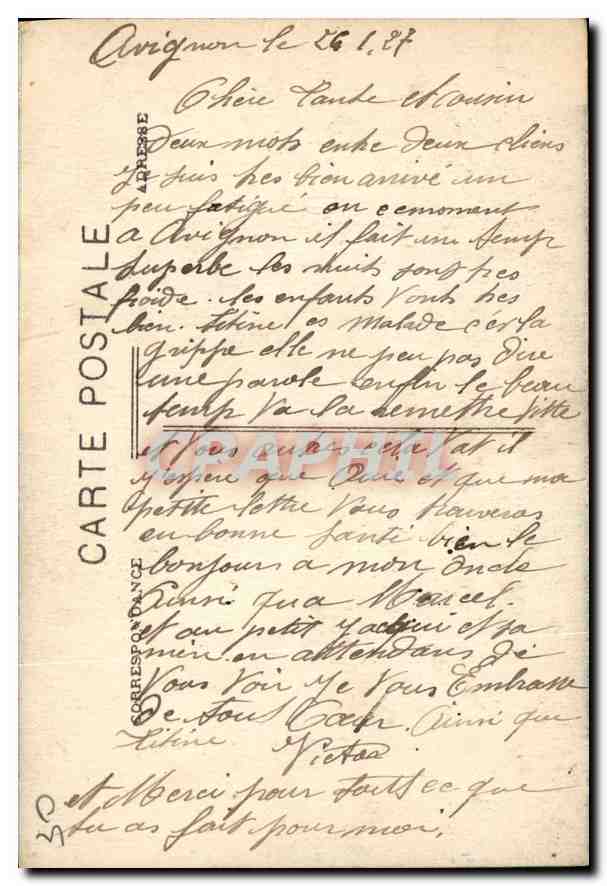 Avignon le 26.1.27
Chère Tante et Cousin
deux mots entre deux
Je suis tres bien arrivé un
peu fatigué en cemoment
a Avignon il fait un temp
superbe les nuits sont tres
froide. les enfants vont tres
bien. titine es malade c'es la
grippe elle ne peu pas dire
une parole enfin le beau
temp va la remettre vitte
et vous autres cela vat il
j'espere que oui et que ma
petite lettre vous trouveras
en bonne santé bien le
bonjours a mon oncle
ainsi qu'a Marcel.
et au petit et sa
en attendans de
vous voir je vous Embrasse
de tous Cœur. ainsi que
titine Victor
et Merci pour touts ce que
tu as fait pour moi.
30
CARTE POSTALE
CORRESPONDANCE
ADRESSE
CPAPHIL